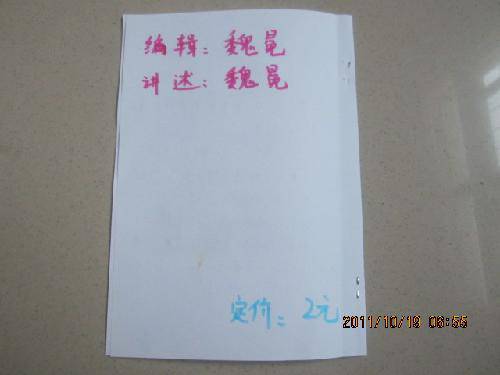 编辑：魏
讲述：魏
定价：2元
2011/10/19 06:55